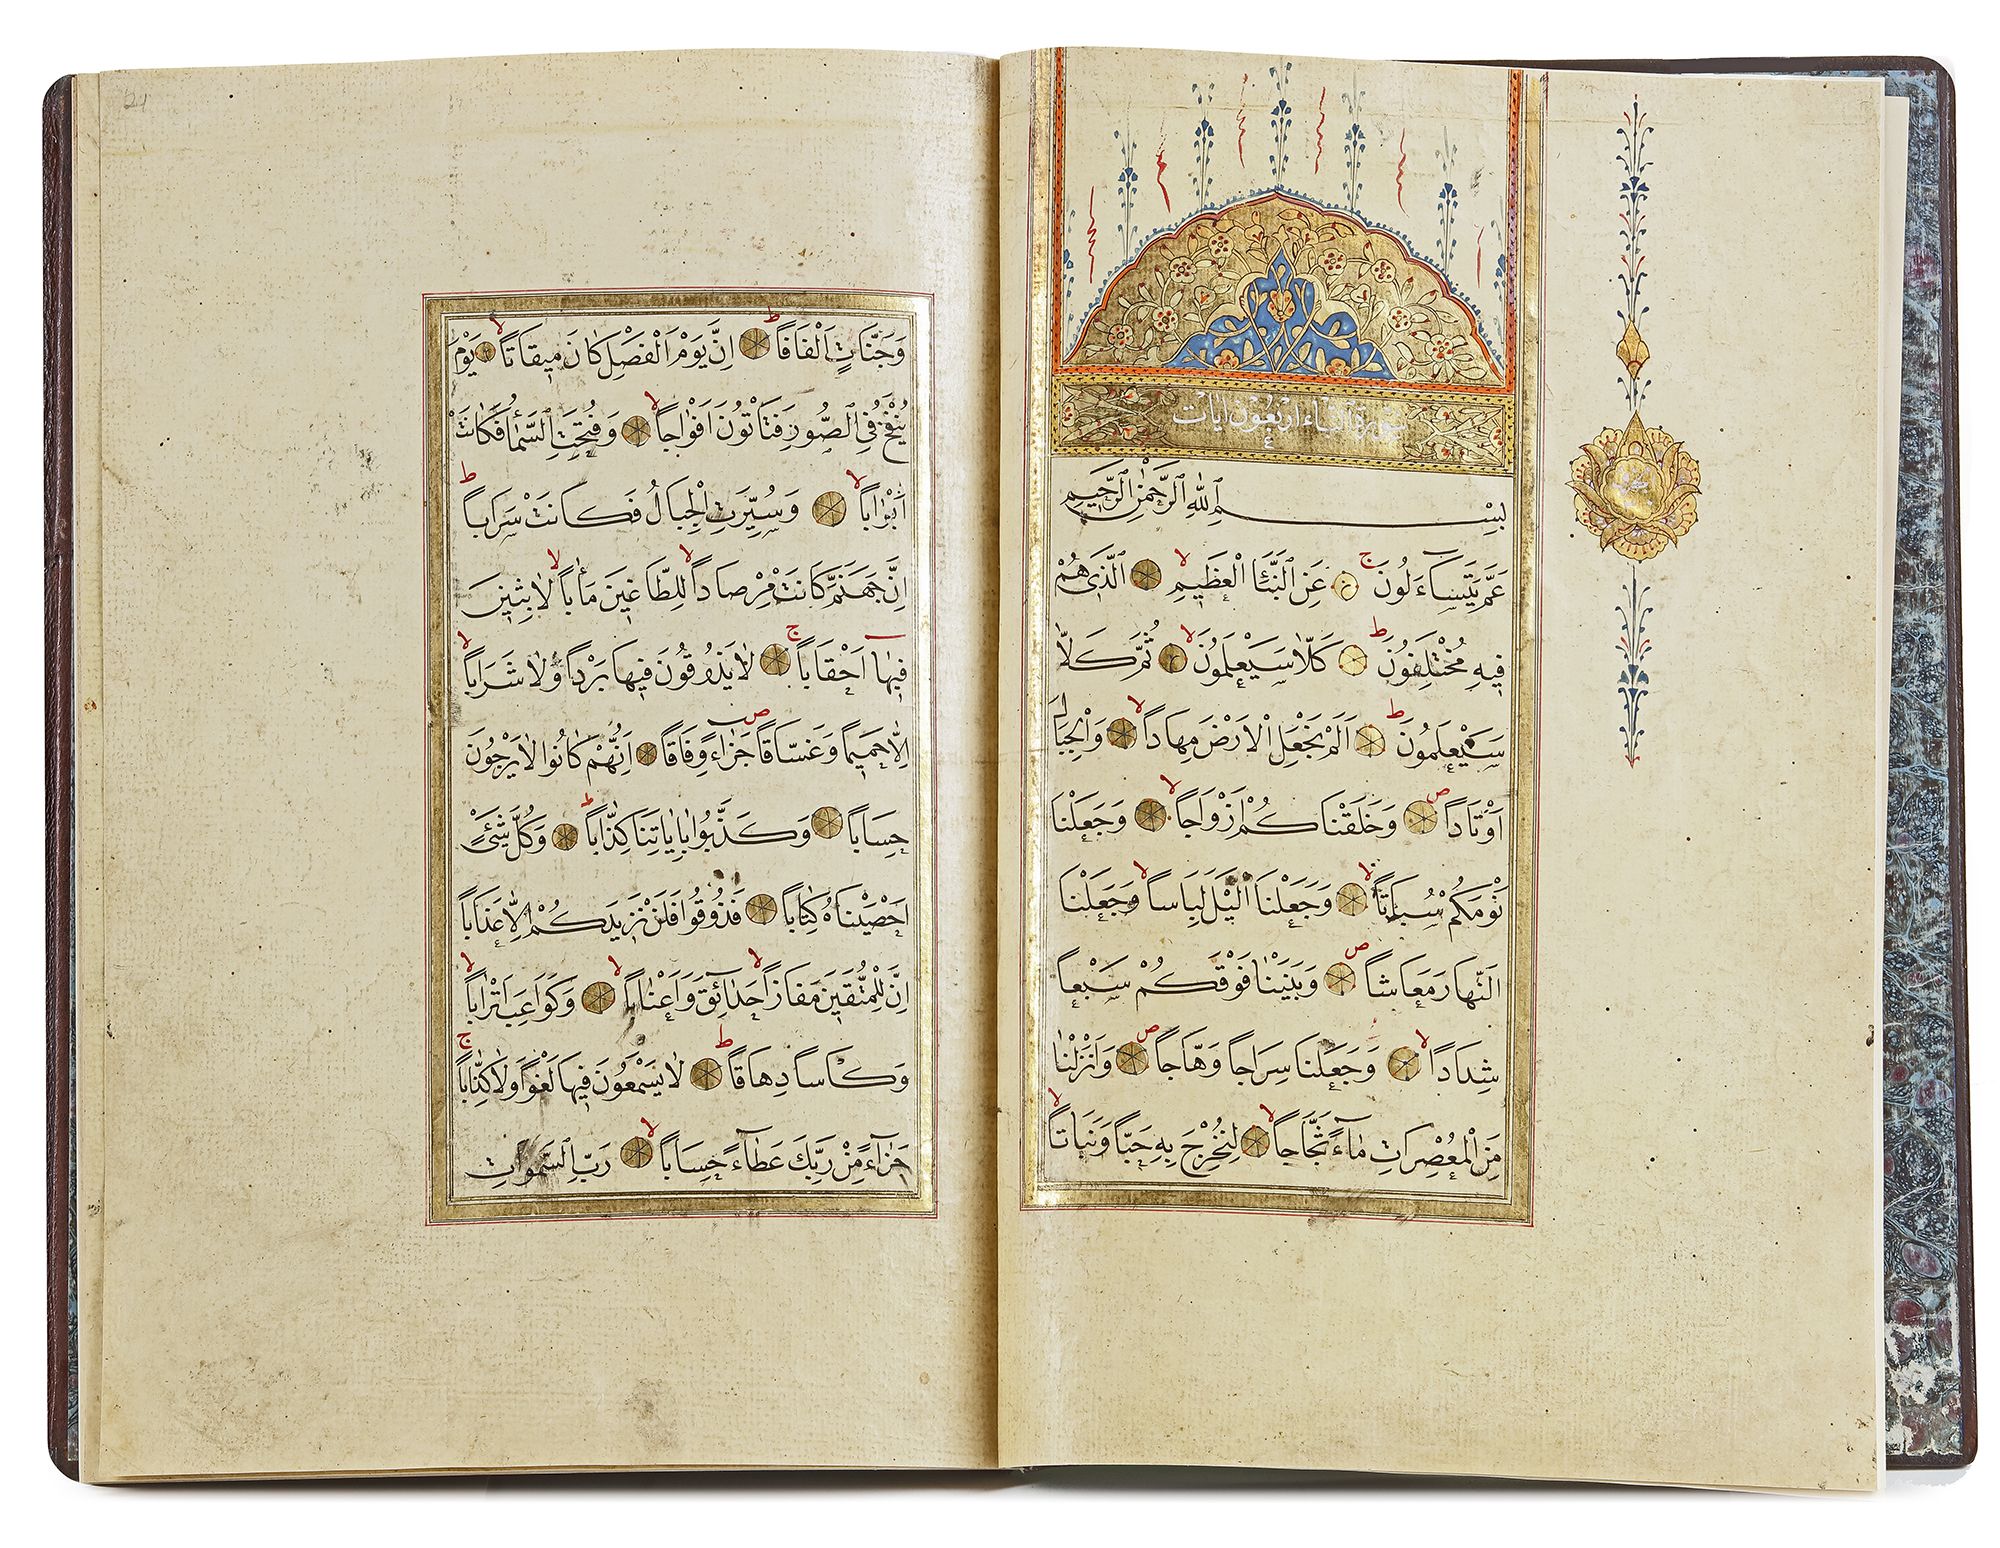 سورة النباء اربعون ايات
بِسْمِ اللهِ الرَّحْمٰنِ الرَّحِيمِ
عَمَّ يَتَسَاءَلُونَ ج عَنِ النَّبَأِ الْعَظِيمِ لا اَلَّذِي هُمْ
فِيهِ مُخْتَلِفُونَ ط كَلَّا سَيَعْلَمُونَ لا ثُمَّ كَلَّا
سَيَعْلَمُونَ ط اَلَمْ نَجْعَلِ الْاَرْضَ مِهَاداً لا وَالْجِبَالَ
اَوْتَاداً ص وَخَلَقْنَاكُمْ اَزْوَاجاً لا وَجَعَلْنَا
نَوْمَكُمْ سُبَاتاً لا وَجَعَلْنَا الَّيْلَ لِبَاساً لا وَجَعَلْنَا
النَّهَارَ مَعَاشاً ص وَبَنَيْنَا فَوْقَكُمْ سَبْعاً
شِدَاداً لا وَجَعَلْنَا سِرَاجاً وَهَّاجاً ص وَاَنْزَلْنَا
مِنَ الْمُعْصِرَاتِ مَاءً ثَجَّاجاً لا لِنُخْرِجَ بِهِ حَبّاً وَنَبَاتاً لا
وَجَنَّاتٍ اَلْفَافاً ط اِنَّ يَوْمَ الْفَصْلِ كَانَ مِيقَاتاً لا يَوْمَ
يُنْفَخُ فِي الصُّورِ فَتَأْتُونَ اَفْوَاجاً لا وَفُتِحَتِ السَّمَاءُ فَكَانَتْ
اَبْوَاباً لا وَسُيِّرَتِ الْجِبَالُ فَكَانَتْ سَرَاباً ط
اِنَّ جَهَنَّمَ كَانَتْ مِرْصَاداً لا لِلطَّاغِينَ مَاٰباً لا لَابِثِينَ
فِيهَا اَحْقَاباً ج لَا يَذُوقُونَ فِيهَا بَرْداً وَلَا شَرَاباً لا
اِلَّا حَمِيماً وَغَسَّاقاً ص جَزَاءً وِفَاقاً اِنَّهُمْ كَانُوا لَا يَرْجُونَ
حِسَاباً وَكَذَّبُوا بِاٰيَاتِنَا كِذَّاباً ط وَكُلَّ شَيْءٍ
اَحْصَيْنَاهُ كِتَاباً فَذُوقُوا فَلَنْ نَزِيدَكُمْ اِلَّا عَذَاباً
اِنَّ لِلْمُتَّقِينَ مَفَازاً لا حَدَائِقَ وَاَعْنَاباً لا وَكَوَاعِبَ اَتْرَاباً لا
وَكَأْساً دِهَاقاً ط لَا يَسْمَعُونَ فِيهَا لَغْواً وَلَا كِذَّاباً ج
جَزَاءً مِنْ رَبِّكَ عَطَاءً حِسَاباً لا رَبِّ السَّمٰوَاتِ